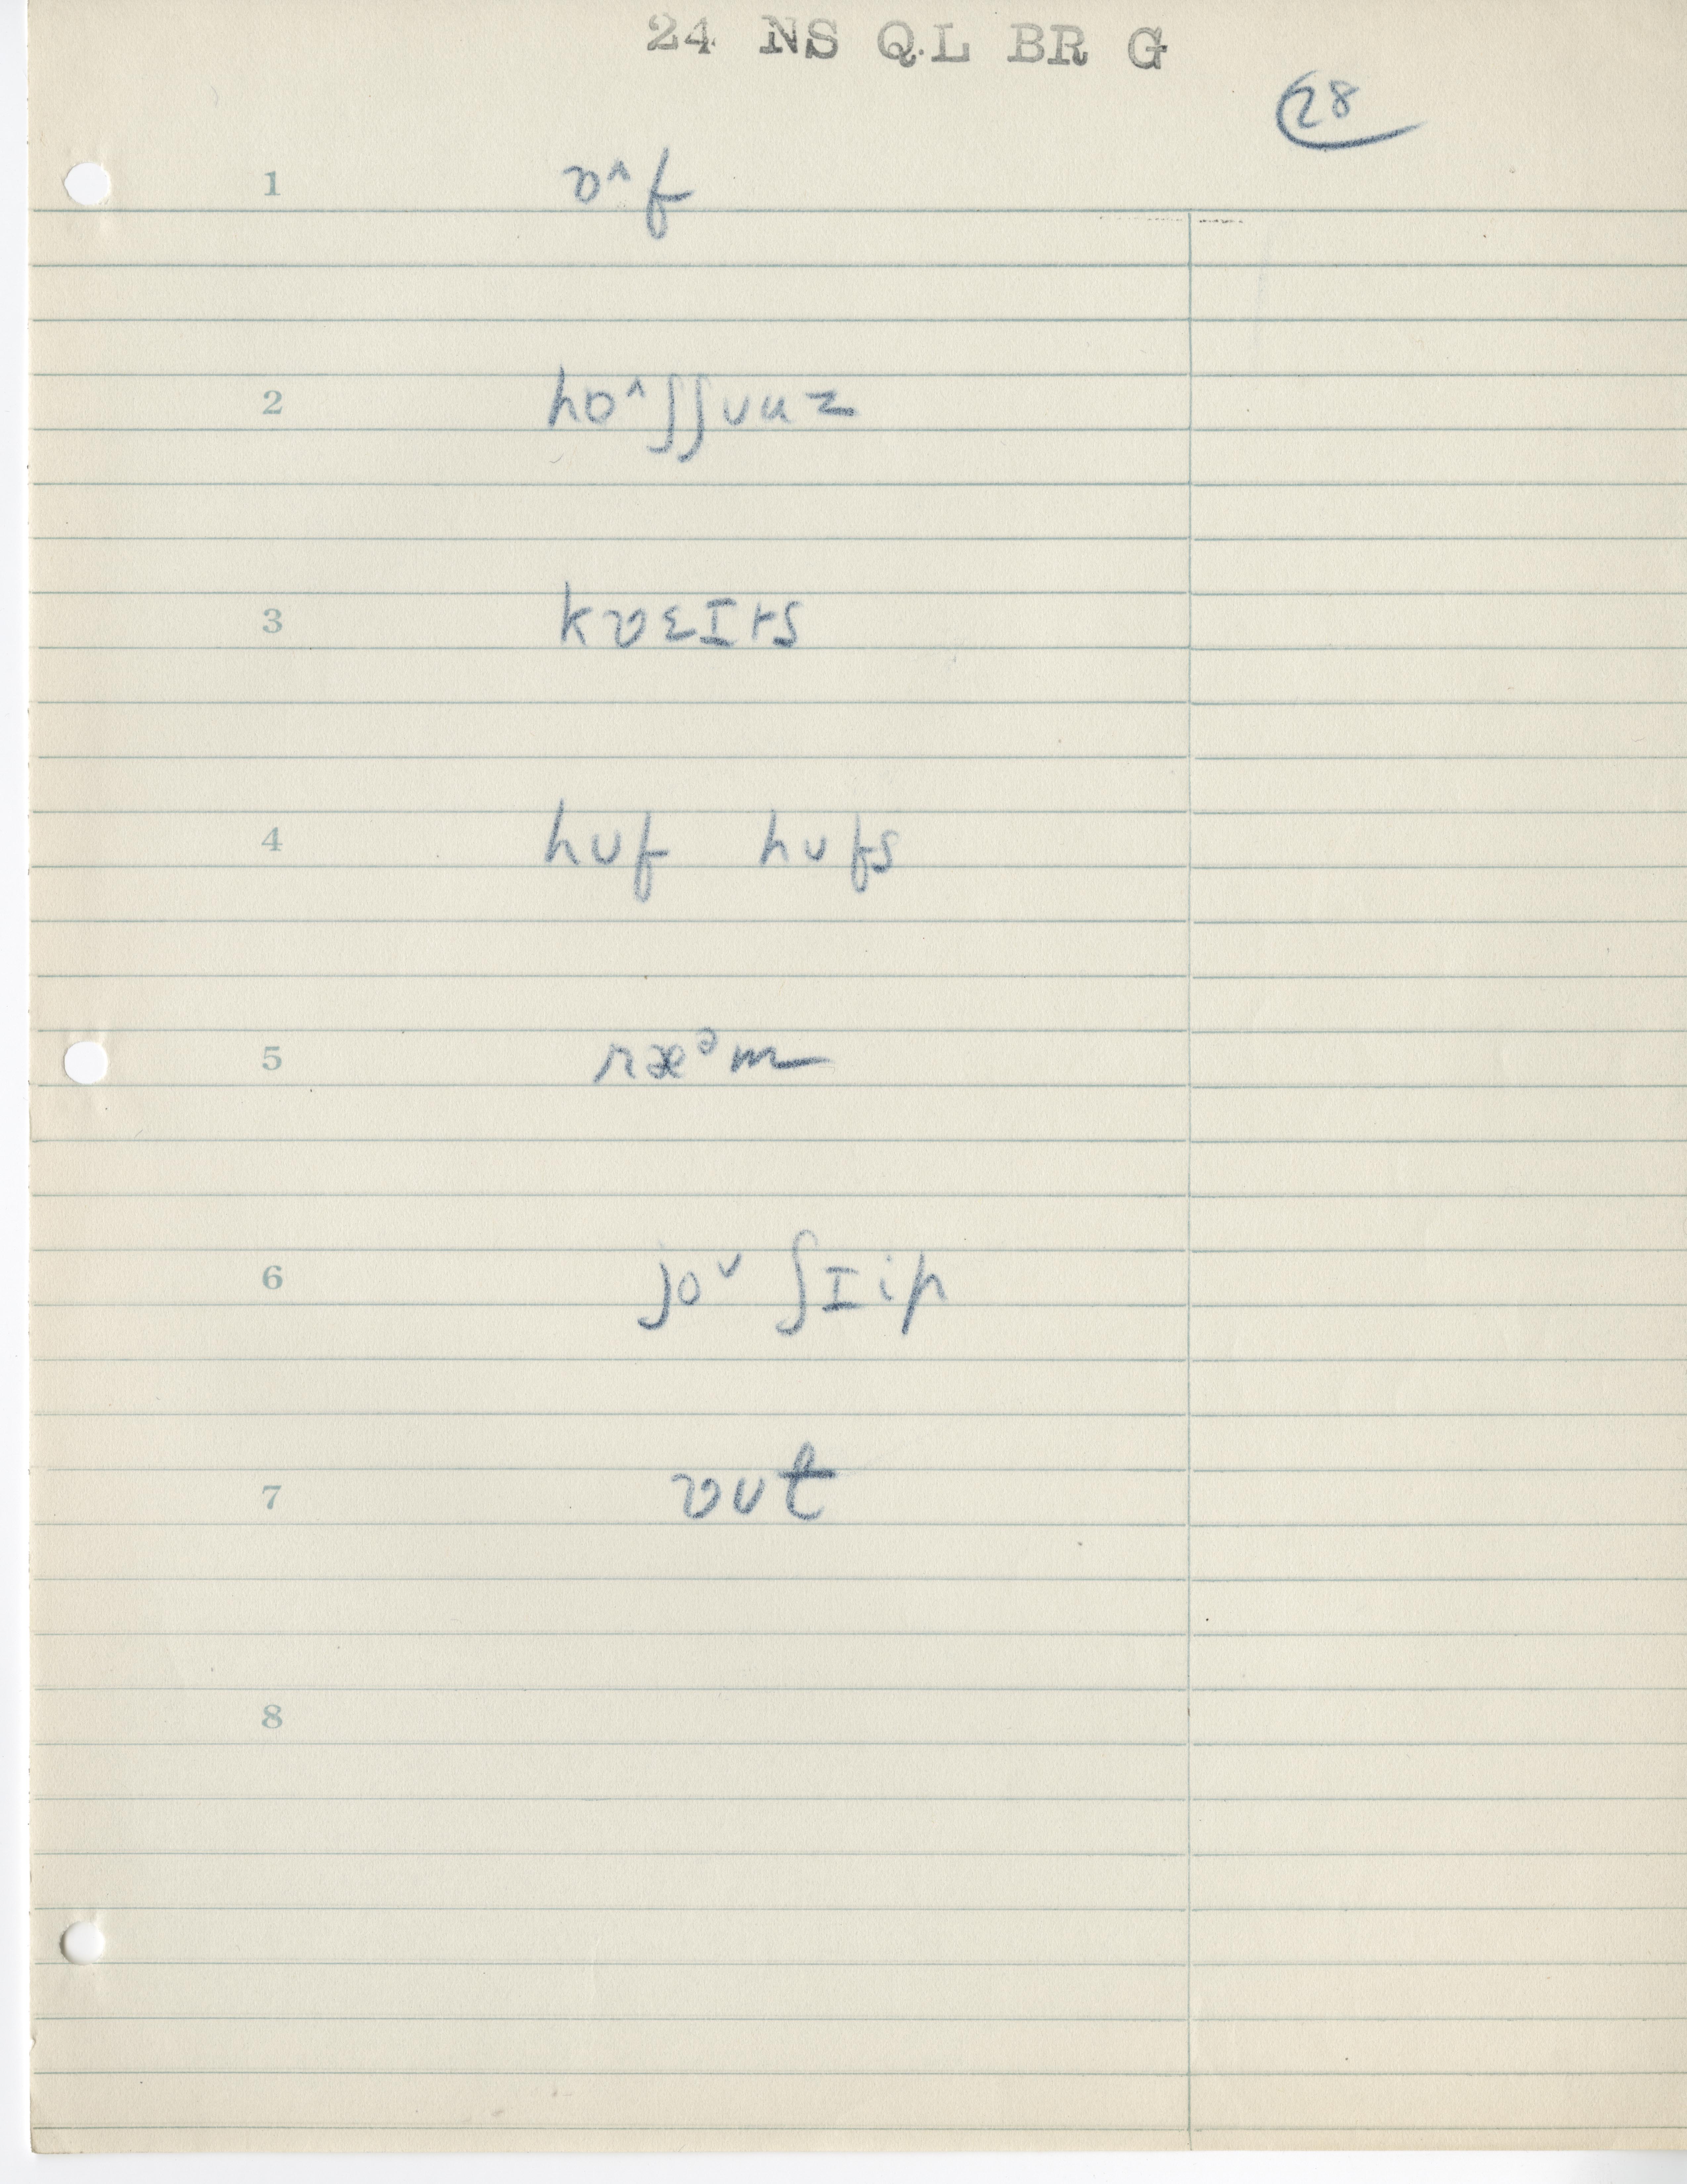 24 NS QL BR G
28
1 ɒ^f
2 ho^ʃʃʊuz
3 kɒɛɪts
4 hʊf hʊfs
5 ræᵊm
6 joᵛ ʃɪip
7 ɒʊt
8